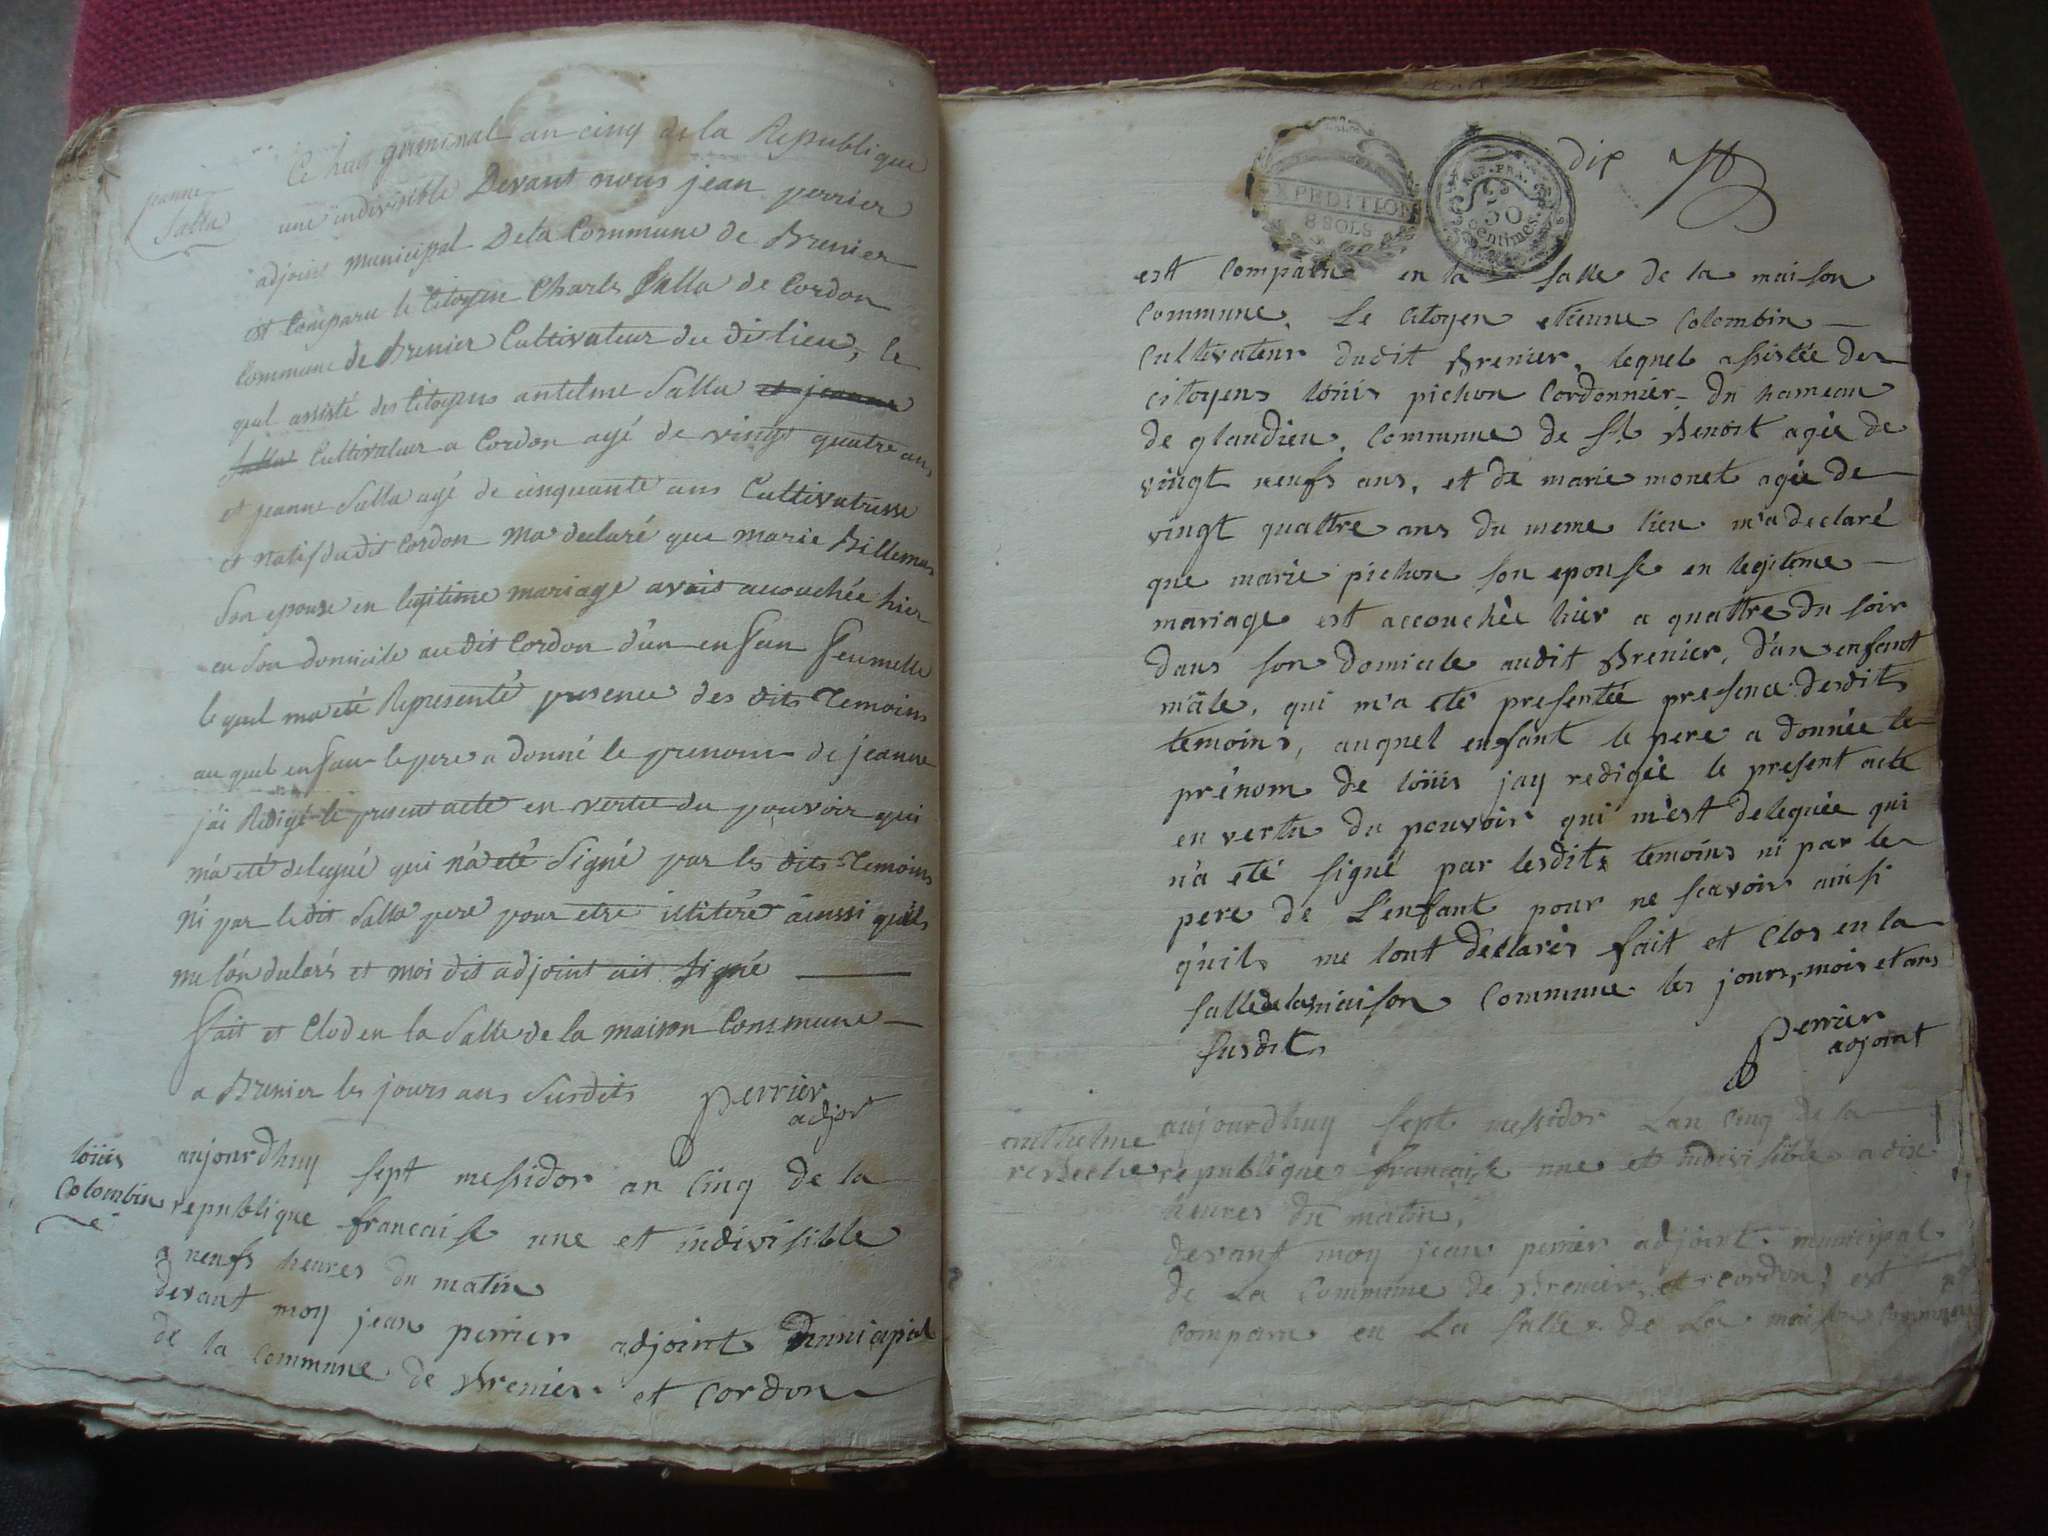 jeanne
Salla
Ce huit germinal an cinq de la Republique
une indivisible Devant nous jean perrier
adjoint municipal De la Commune de Brenier
est Comparu le Citoyen Charles Salla de Cordon
Commune de Brenier Cultivateur du dit lieu, le
quel assisté des Citoyens antelme Salla et jeanne
Salla Cultivateur a Cordon agé de vingt quatre ans
et jeanne Salla agé de cinquante ans Cultivatrisse
et natif du dit Cordon ma declaré que marie Billemas
Son epouse en legitime mariage avait acouchée hier
en Son domicile au dit Cordon d'un enfan femelle
le quel ma eté Representé presence des dits Temoins
au quel enfan le pere a donné le prenom de jeanne
j'ai Redigé le present acte en vertu du pouvoir qui
m'a eté delegué qui n'a eté Signé par les dits Temoins
ni par le dit Salla pere pour etre illiteré aussi quils
me l'on dularés et moi dit adjoint ait Signé
fait et Clod en la Salle de la maison Commune
a Brenier les jours ans Susdits perrier
adjoit
loüis
Colombin
aujourdhuy sept messidor an Cinq de la
republique francaise une et indivisible
a neufs heures du matin
devant moy jean perrier adjoint municipal
de la Commune de Brenier et Cordon
EXPEDITION
8 SOLS
REP. FRA.
50
centimes.
dix
est Comparu en la salle de la maison
Commune. Le Citoyen etienne Colombin
Cultivateur dudit Brenier, lequel assistée des
citoyens loüis pichon Cordonnier du hameau
de glandieu, Commune de St Benoit agée de
vingt neufs ans, et de marie monet agée de
vingt quattre ans du meme lieu m'a declaré
que marie pichon son epouse en legitime
mariage est accouchée hier a quattre du soir
dans son domicile audit Brenier, d'un enfant
mâle, qui m'a eté presentée presence desdits
temoins, auquel enfant le pere a donnée le
prénom de loüis jay redigée le present acte
en vertu du pouvoir qui m'est deleguée qui
n'a eté signé par lesdits temoins ni par le
pere de L'enfant pour ne scavoir ainsi
qu'ils me lont déclarés fait et Clos en la
salle de la maison Commune les jours, mois et ans
susdits perrier
adjoint
anthelme
aujourdhuy sept messidor Lan Cinq de la
republique francaise une et indivisible a dix
heures du matin,
devant moy jean perrier adjoint municipal
de La Commune de Brenier et Cordon, est
Comparu en La salle de La maison Commune